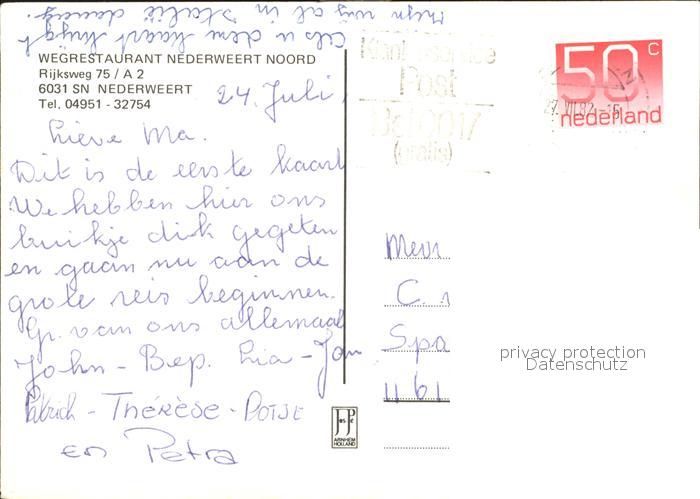 WEGRESTAURANT NEDERWEERT NOORD
Rijksweg 75 / A 2
6031 SN NEDERWEERT
Tel. 04951 - 32754
24. Juli
Lieve Ma.
Dit is de eerste kaart
We hebben hier ons
buikje dik gegeten
en gaan nu aan de
grote reis beginnen.
Gr. van ons allemaal
John - Bep. Lia - Jan
Patrick - Thérèse - Potje
en Petra
Als u deze kaart krijgt
zijn wij al in Italië
Post
(gratis)
50 C
27. VII. 82
nederland
Mevr
C.
Spa
1161
privacy protection
Datenschutz
JosPé
ARNHEM
HOLLAND